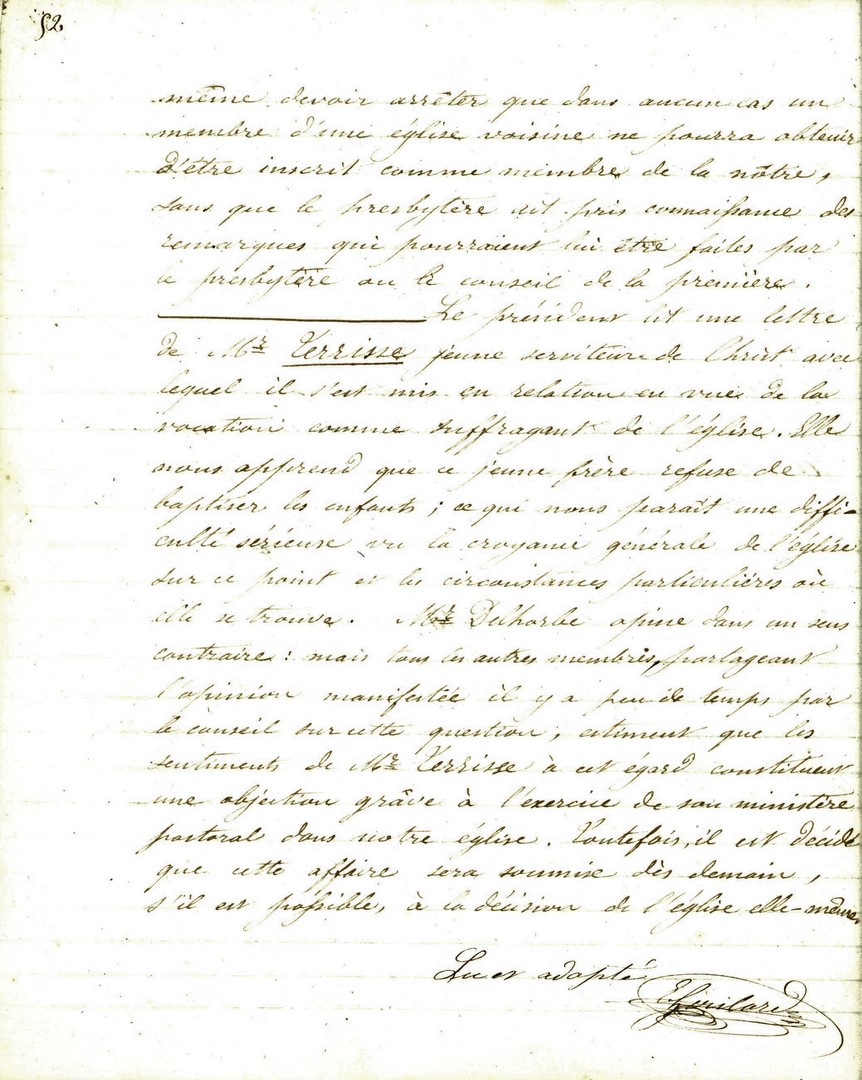 52
même devoir arrêter que dans aucun cas un
membre d'une église voisine ne pourra obtenir
d'être inscrit comme membre de la nôtre,
sans que le presbytère ait pris connaissance des
remarques qui pourraient lui être faites par
le presbytère ou le conseil de la première.
Le président lit une lettre
de Mr Verrisse jeune serviteur de Christ avec
lequel il s'est mis en relation en vue de la
vocation comme suffragant de l'église. Elle
nous apprend que ce jeune frère refuse de
baptiser les enfants ; ce qui nous paraît une diffi-
culté sérieuse vu la croyance générale de l'église
sur ce point et les circonstances particulières où
elle se trouve. Mr Delhorbe opine dans un sens
contraire : mais tous les autres membres, partageant
l'opinion manifestée il y a peu de temps par
le conseil sur cette question, estiment que les
sentiments de Mr Verrisse à cet égard constituent
une objection grâve à l'exercice de son ministère
pastoral dans notre église. Toutefois, il est décidé
que cette affaire sera soumise dès demain,
s'il est possible, à la décision de l'église elle-même.
Lu et adopté